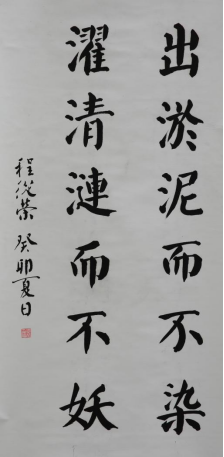 出淤泥而不染
濯清漣而不妖
程俊荣 癸卯夏日